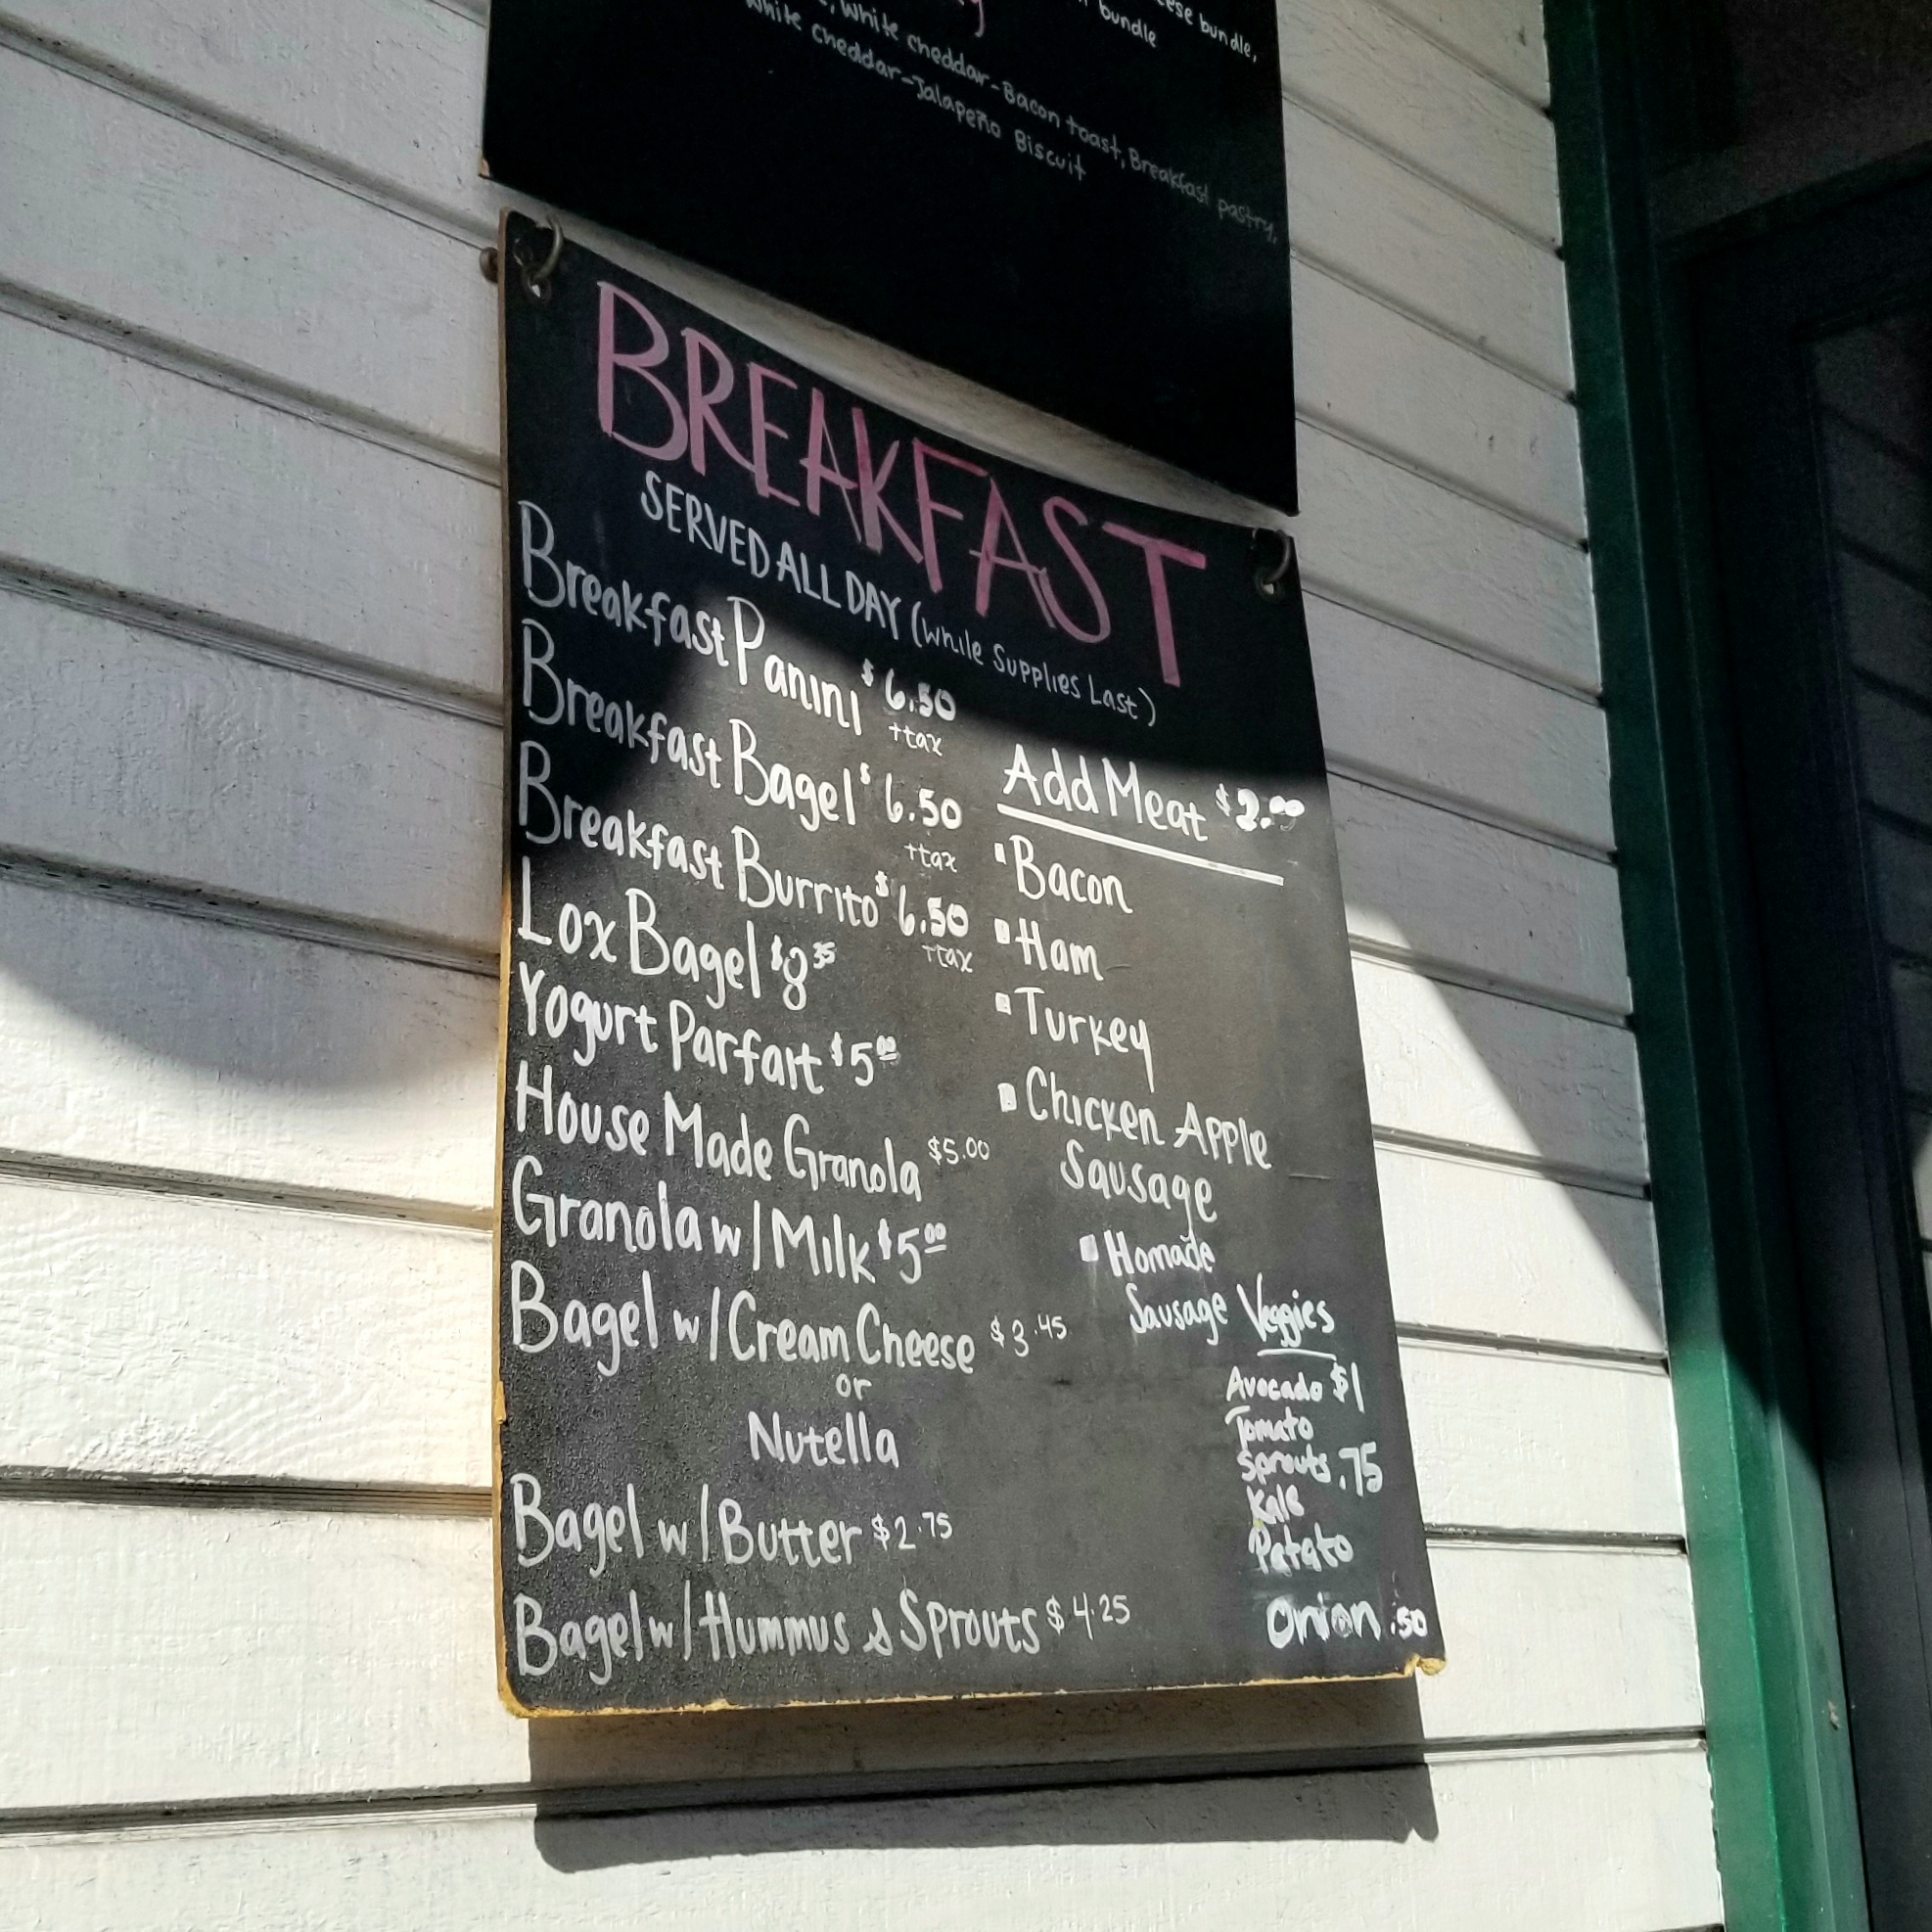 bundle,
bundle
White cheddar-Bacon toast, Breakfast pastry,
White cheddar-Jalapeño Biscuit
BREAKFAST
SERVED ALL DAY (While Supplies Last)
Breakfast Panini $6.50
+tax
Breakfast Bagel $6.50
+tax
Breakfast Burrito $6.50
+tax
Lox Bagel
Yogurt Parfait $5.00
House Made Granola $5.00
Granola w/ Milk $5.00
Bagel w/ Cream Cheese $3.45
or
Nutella
Bagel w/ Butter $2.75
Bagel w/ Hummus & Sprouts $4.25
Add Meat $2.00
Bacon
Ham
Turkey
Chicken Apple
Sausage
Homade
Sausage
Veggies
Avocado $1
Tomato
Sprouts .75
Kale
Patato
Onion .50